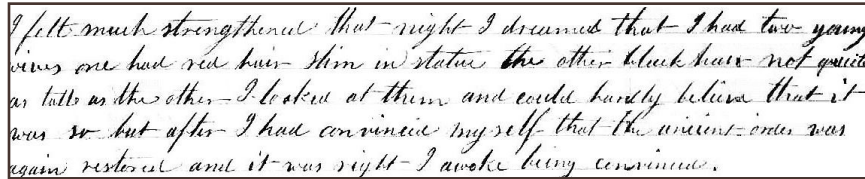 I felt much strengthened that night I dreamed that I had two young
wives one had red hair slim in statue the other black hair not quite
as tall as the other I looked at them and could hardly believe that it
was so but after I had convincied myself that the ancient order was
again restored and it was right I awoke being convinced.